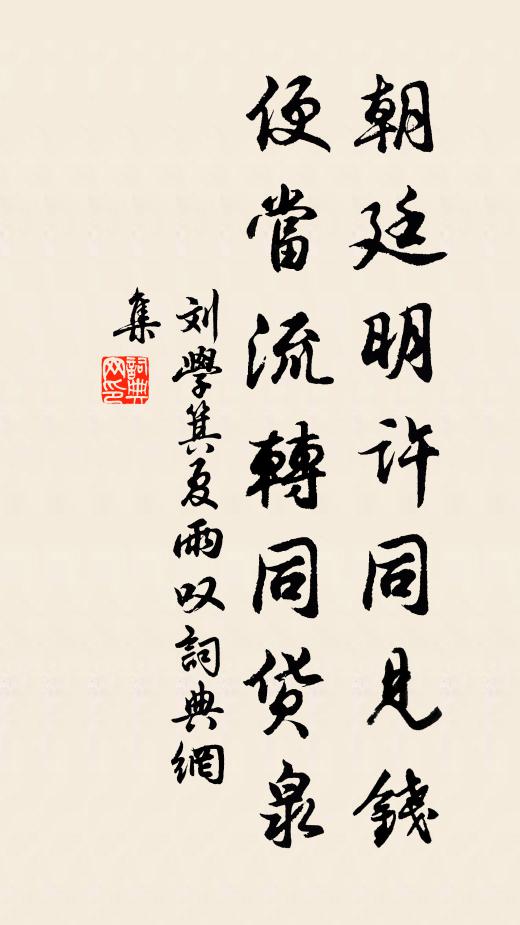 朝廷明許同見錢
便當流轉同貨泉
刘學箕夏雨叹詞典網
集
詞典
网印